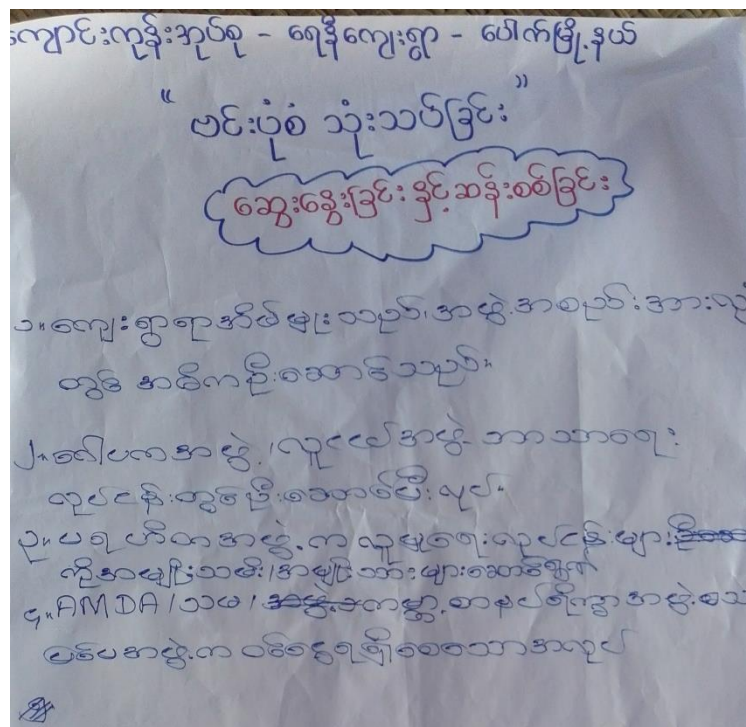 ကျောင်းကုန်းအုပ်စု - ရေနီကျေးရွာ - ပေါက်မြို့နယ်
" ဗင်းပုံစံ သုံးသပ်ခြင်း "
ဆွေးနွေးခြင်း နှင့် ဆန်းစစ်ခြင်း
၁။ ကျေးရွာရာအိမ်မှူးသည်၊ အဖွဲ့အစည်းအား
တွင် အဓိကဦးဆောင်သည်။
၂။ ဂေါပကအဖွဲ့၊ လူငယ်အဖွဲ့ ဘာသာရေး
လုပ်ငန်းတွင်ဦးဆောင်ပြီးလုပ်။
၃။ ပရဟိတအဖွဲ့က လူမှုရေးလုပ်ငန်းများ
ကိုအမျိုးသမီး/အမျိုးသားများဆောင်ရွက်
၄။ AMDA / သမ / ကမ္ဘာ့စားနပ်ရိက္ခာအဖွဲ့
ပြင်ပအဖွဲ့က ဝင်ငွေရရှိစေသောအလုပ်